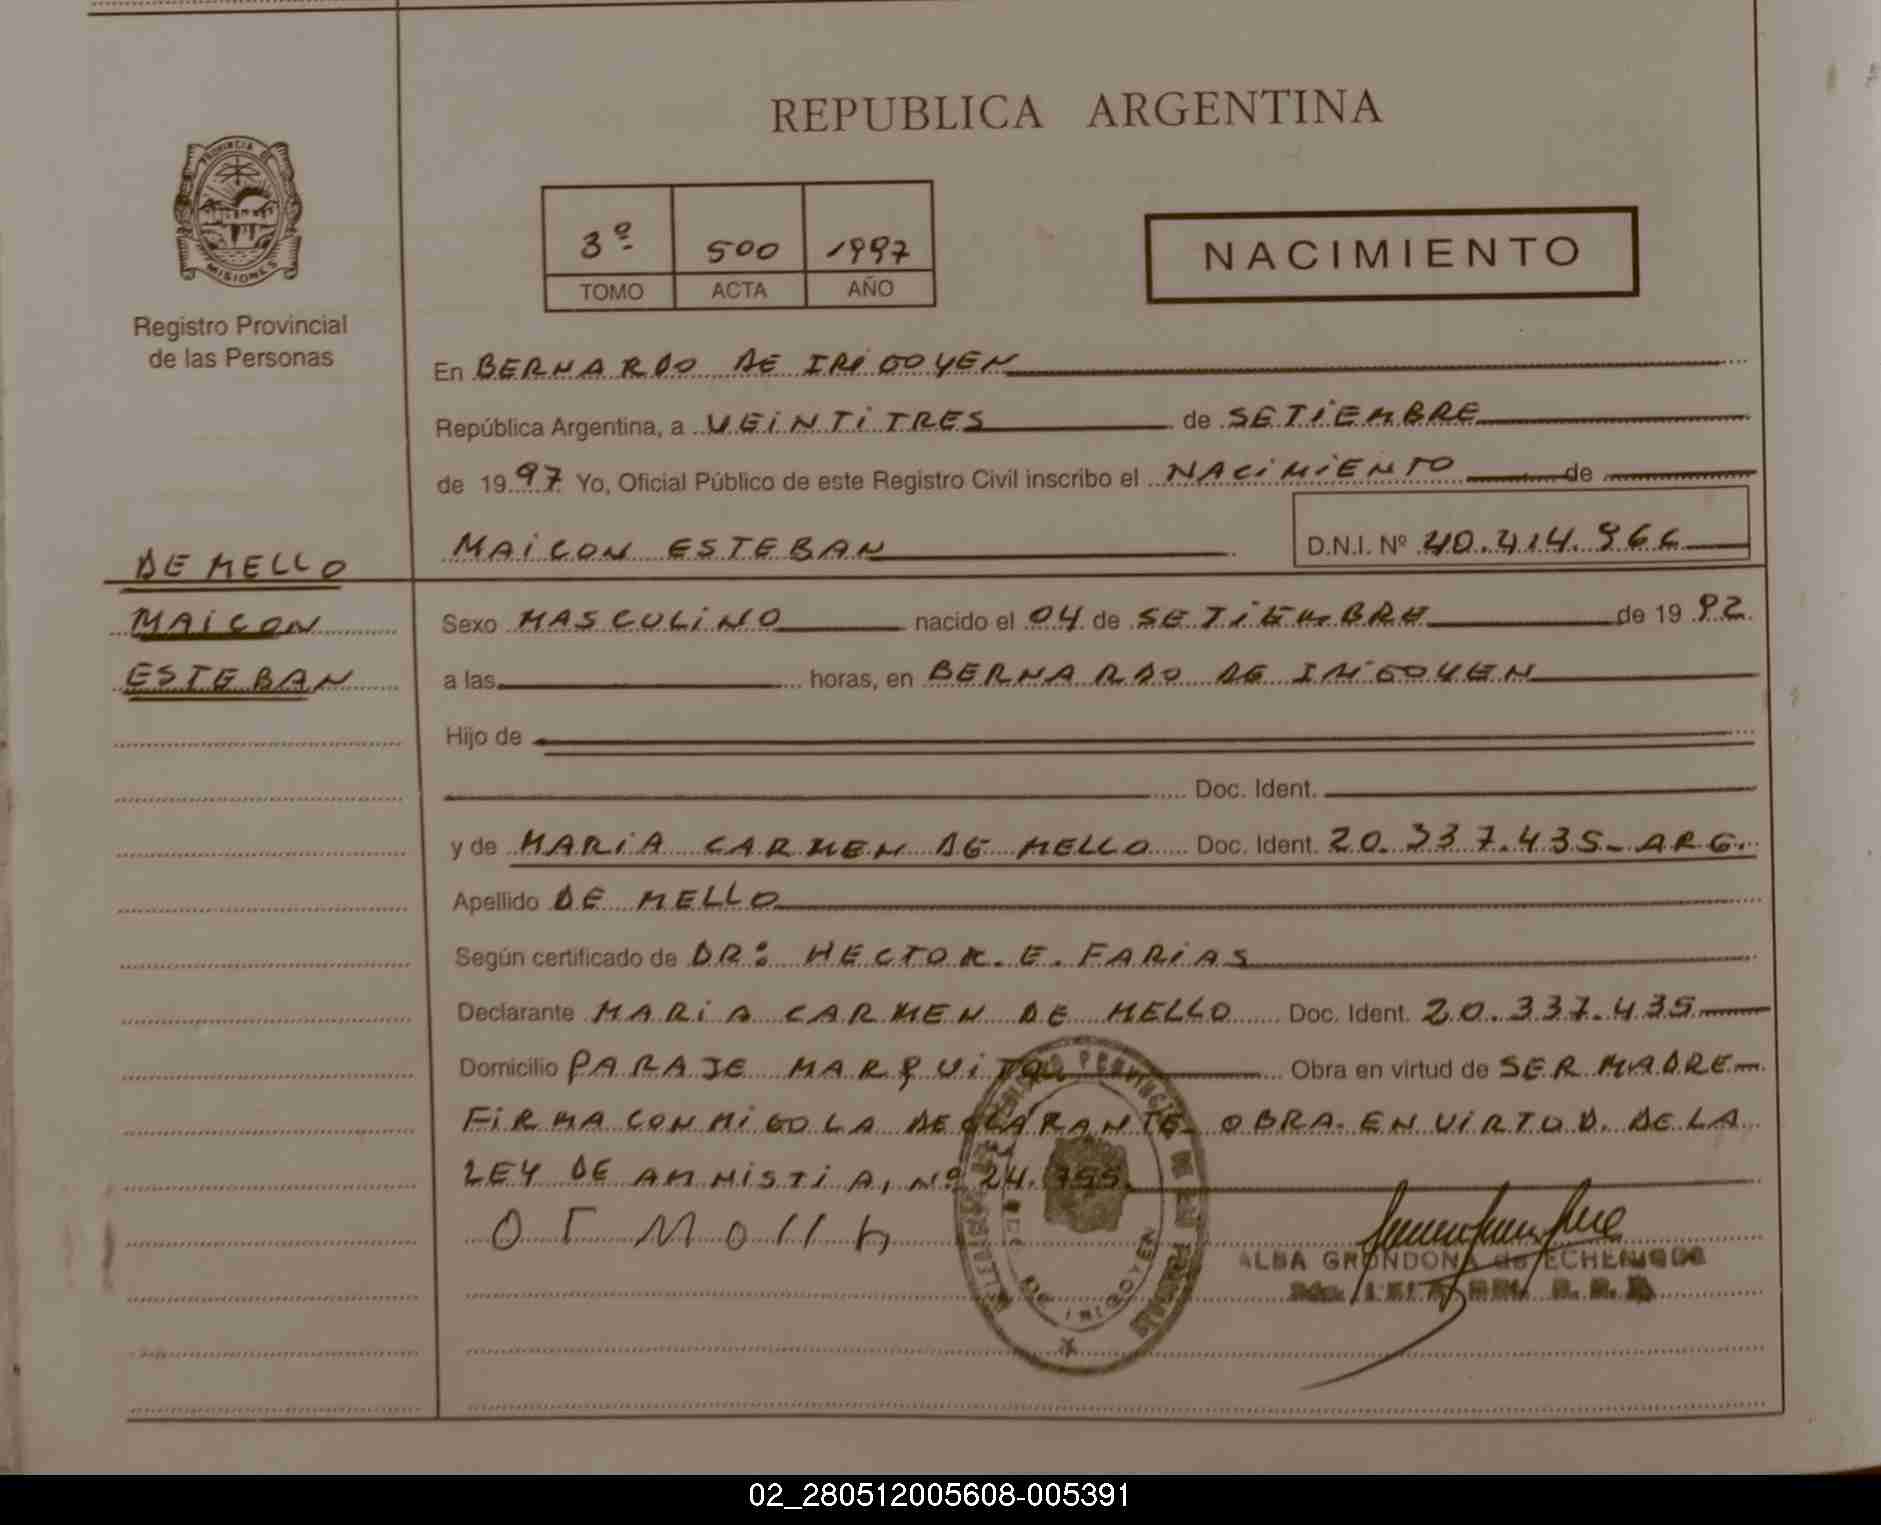 REPUBLICA ARGENTINA
PROVINCIA DE
MISIONES
Registro Provincial
de las Personas
3º 500 1997
TOMO ACTA AÑO
NACIMIENTO
En BERNARDO DE IRIGOYEN
República Argentina, a VEINTITRES de SETIEMBRE
de 1997 Yo, Oficial Público de este Registro Civil inscribo el NACIMIENTO de
MAICON ESTEBAN D.N.I. Nº 40.414.966
DE MELLO
MAICON
ESTEBAN
Sexo MASCULINO nacido el 04 de SETIEMBRE de 1992
a las horas, en BERNARDO DE IRIGOYEN
Hijo de
Doc. Ident.
y de MARIA CARMEN DE MELLO Doc. Ident. 20.337.435-ARG.
Apellido DE MELLO
Según certificado de DR: HECTOR. E. FARIAS
Declarante MARIA CARMEN DE MELLO Doc. Ident. 20.337.435
Domicilio PARAJE MARQUITO Obra en virtud de SER MADRE
FIRMA CONMIGO LA DECLARANTE. OBRA EN VIRTUD. DE LA
LEY DE AMNISTIA, Nº 24.755.
ALBA GRONDONA de ECHENIQUE
DE IRIGOYEN
02_280512005608-005391